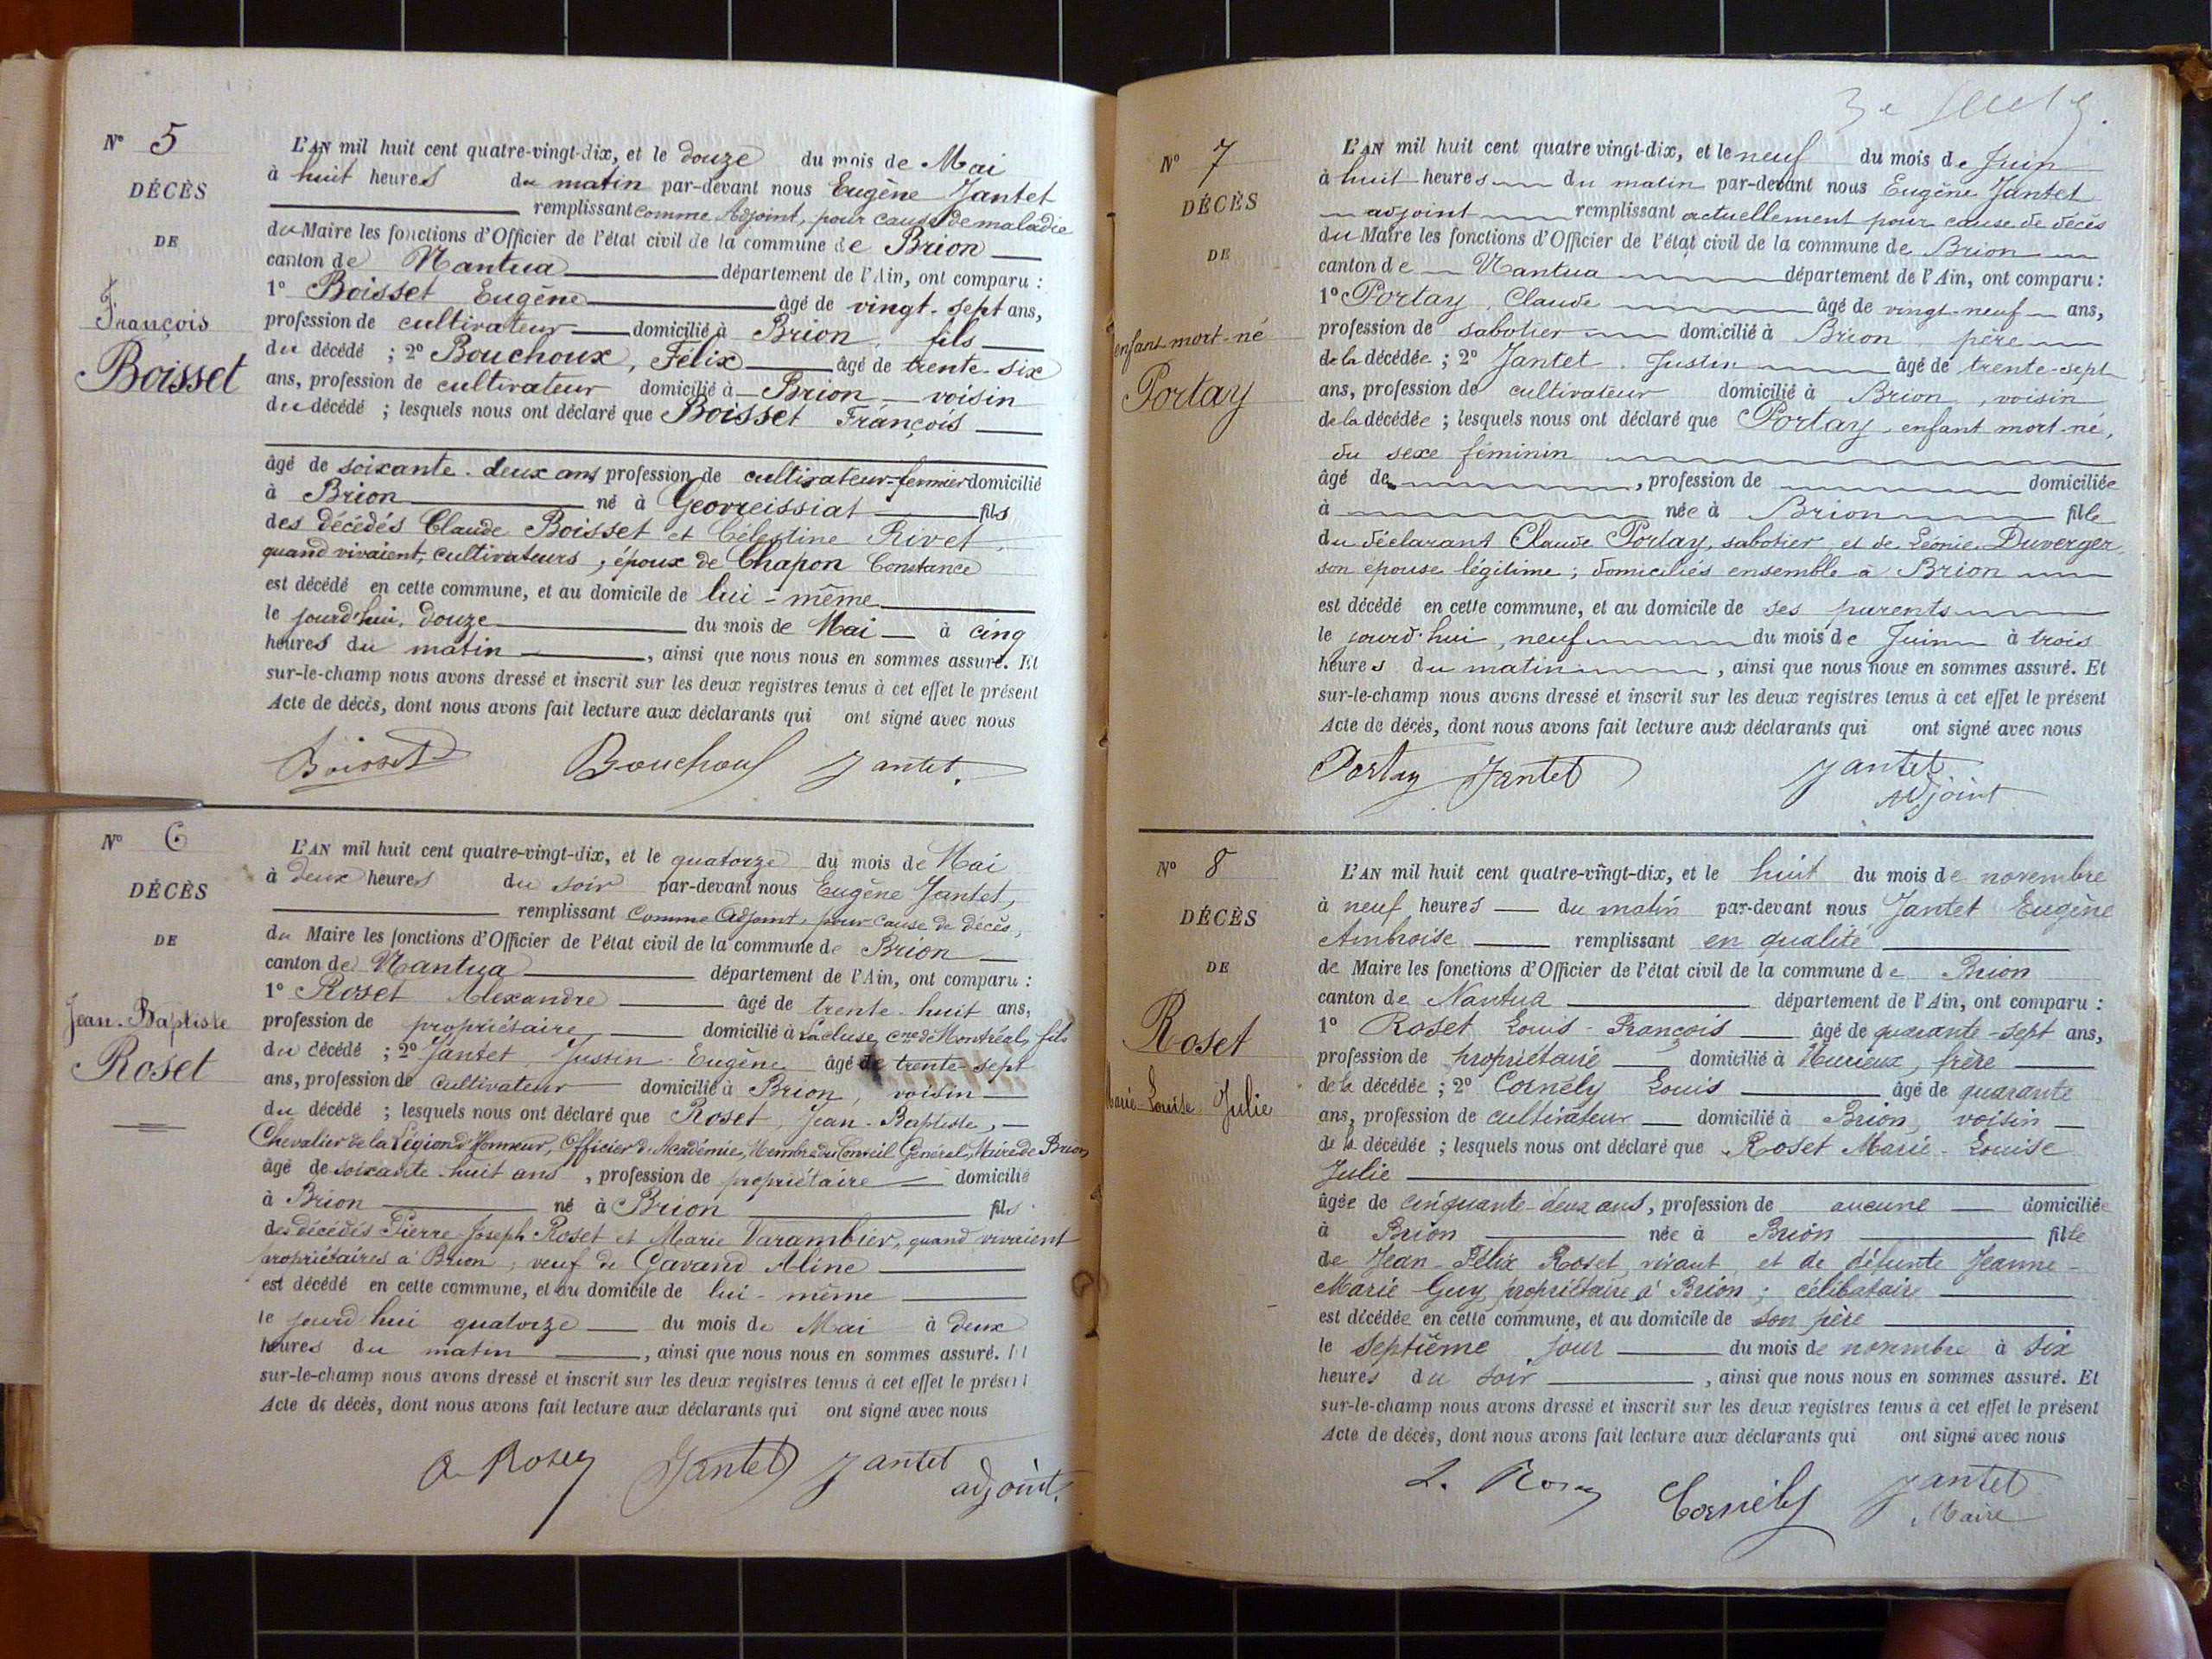 N° 5
DÉCÈS
DE
François
Boisset
L'AN mil huit cent quatre-vingt-dix, et le douze du mois de Mai
à huit heures du matin par-devant nous Eugène Jantet
remplissant comme Adjoint, pour cause de maladie
du Maire les fonctions d'Officier de l'état civil de la commune de Brion
canton de Nantua département de l'Ain, ont comparu :
1° Boisset Eugène âgé de vingt-sept ans,
profession de cultivateur domicilié à Brion, fils
du décédé ; 2° Bouchoux, Félix âgé de trente-six
ans, profession de cultivateur domicilié à Brion voisin
du décédé ; lesquels nous ont déclaré que Boisset François
âgé de soixante-deux ans profession de cultivateur-fermier domicilié
à Brion né à Géovreissiat fils
des décédés Claude Boisset et Célestine Rivet,
quand vivaient, cultivateurs ; époux de Chapon Constance
est décédé en cette commune, et au domicile de lui-même
le jourd'hui, douze du mois de Mai à cinq
heures du matin, ainsi que nous nous en sommes assuré. Et
sur-le-champ nous avons dressé et inscrit sur les deux registres tenus à cet effet le présent
Acte de décès, dont nous avons fait lecture aux déclarants qui ont signé avec nous
Boisset Bouchoux Jantet.
N° 6
DÉCÈS
DE
Jean-Baptiste
Roset
L'AN mil huit cent quatre-vingt-dix, et le quatorze du mois de Mai
à deux heures du soir par-devant nous Eugène Jantet,
remplissant comme Adjoint, pour cause de décès,
du Maire les fonctions d'Officier de l'état civil de la commune de Brion
canton de Nantua département de l'Ain, ont comparu :
1° Roset Alexandre âgé de trente-huit ans,
profession de propriétaire domicilié à Lacluse, cne de Montréal, fils
du décédé ; 2° Jantet Justin-Eugène âgé de trente-sept
ans, profession de cultivateur domicilié à Brion, voisin
du décédé ; lesquels nous ont déclaré que Roset, Jean-Baptiste,
Chevalier de la Légion d'Honneur, Officier d'Académie, Membre du Conseil Général, Maire de Brion,
âgé de soixante-huit ans, profession de propriétaire domicilié
à Brion né à Brion fils
des décédés Pierre-Joseph Roset et Marie Varambier, quand vivaient
propriétaires à Brion, veuf de Gavand Aline
est décédé en cette commune, et au domicile de lui-même
le jourd'hui quatorze du mois de Mai à deux
heures du matin, ainsi que nous nous en sommes assuré. Et
sur-le-champ nous avons dressé et inscrit sur les deux registres tenus à cet effet le présent
Acte de décès, dont nous avons fait lecture aux déclarants qui ont signé avec nous
A. Roset Jantet Jantet
adjoint.
N° 7
DÉCÈS
DE
enfant mort-né
Portay
L'AN mil huit cent quatre vingt-dix, et le neuf du mois de Juin
à huit heures du matin par-devant nous Eugène Jantet
adjoint remplissant actuellement pour cause de décès
du Maire les fonctions d'Officier de l'état civil de la commune de Brion
canton de Nantua département de l'Ain, ont comparu :
1° Portay, Claude âgé de vingt-neuf ans,
profession de sabotier domicilié à Brion, père
de la décédée ; 2° Jantet, Justin âgé de trente-sept
ans, profession de cultivateur domicilié à Brion, voisin
de la décédée ; lesquels nous ont déclaré que Portay, enfant mort-né,
du sexe féminin
âgé de, profession de domiciliée
à née à Brion fille
du déclarant Claude Portay, sabotier et de Léonie Duverger,
son épouse légitime ; domiciliés ensemble à Brion
est décédé en cette commune, et au domicile de ses parents
le jourd'hui, neuf du mois de Juin à trois
heures du matin, ainsi que nous nous en sommes assuré. Et
sur-le-champ nous avons dressé et inscrit sur les deux registres tenus à cet effet le présent
Acte de décès, dont nous avons fait lecture aux déclarants qui ont signé avec nous
Portay Jantet Jantet
Adjoint
N° 8
DÉCÈS
DE
Roset
Marie-Louise Julie
L'AN mil huit cent quatre-vingt-dix, et le huit du mois de novembre
à neuf heures du matin par-devant nous Jantet Eugène
Ambroise remplissant en qualité
de Maire les fonctions d'Officier de l'état civil de la commune de Brion
canton de Nantua département de l'Ain, ont comparu :
1° Roset Louis-François âgé de quarante-sept ans,
profession de propriétaire domicilié à Nurieux, frère
de la décédée ; 2° Cornély Louis âgé de quarante
ans, profession de cultivateur domicilié à Brion, voisin
de la décédée ; lesquels nous ont déclaré que Roset Marie-Louise
Julie
âgée de cinquante-deux ans, profession de aucune domiciliée
à Brion née à Brion fille
de Jean-Félix Roset, vivant, et de défunte Jeanne-
Marie Guy, propriétaire à Brion ; célibataire
est décédée en cette commune, et au domicile de son père
le septième jour du mois de novembre à six
heures du soir, ainsi que nous nous en sommes assuré. Et
sur-le-champ nous avons dressé et inscrit sur les deux registres tenus à cet effet le présent
Acte de décès, dont nous avons fait lecture aux déclarants qui ont signé avec nous
L. Roset Cornély Jantet
Maire